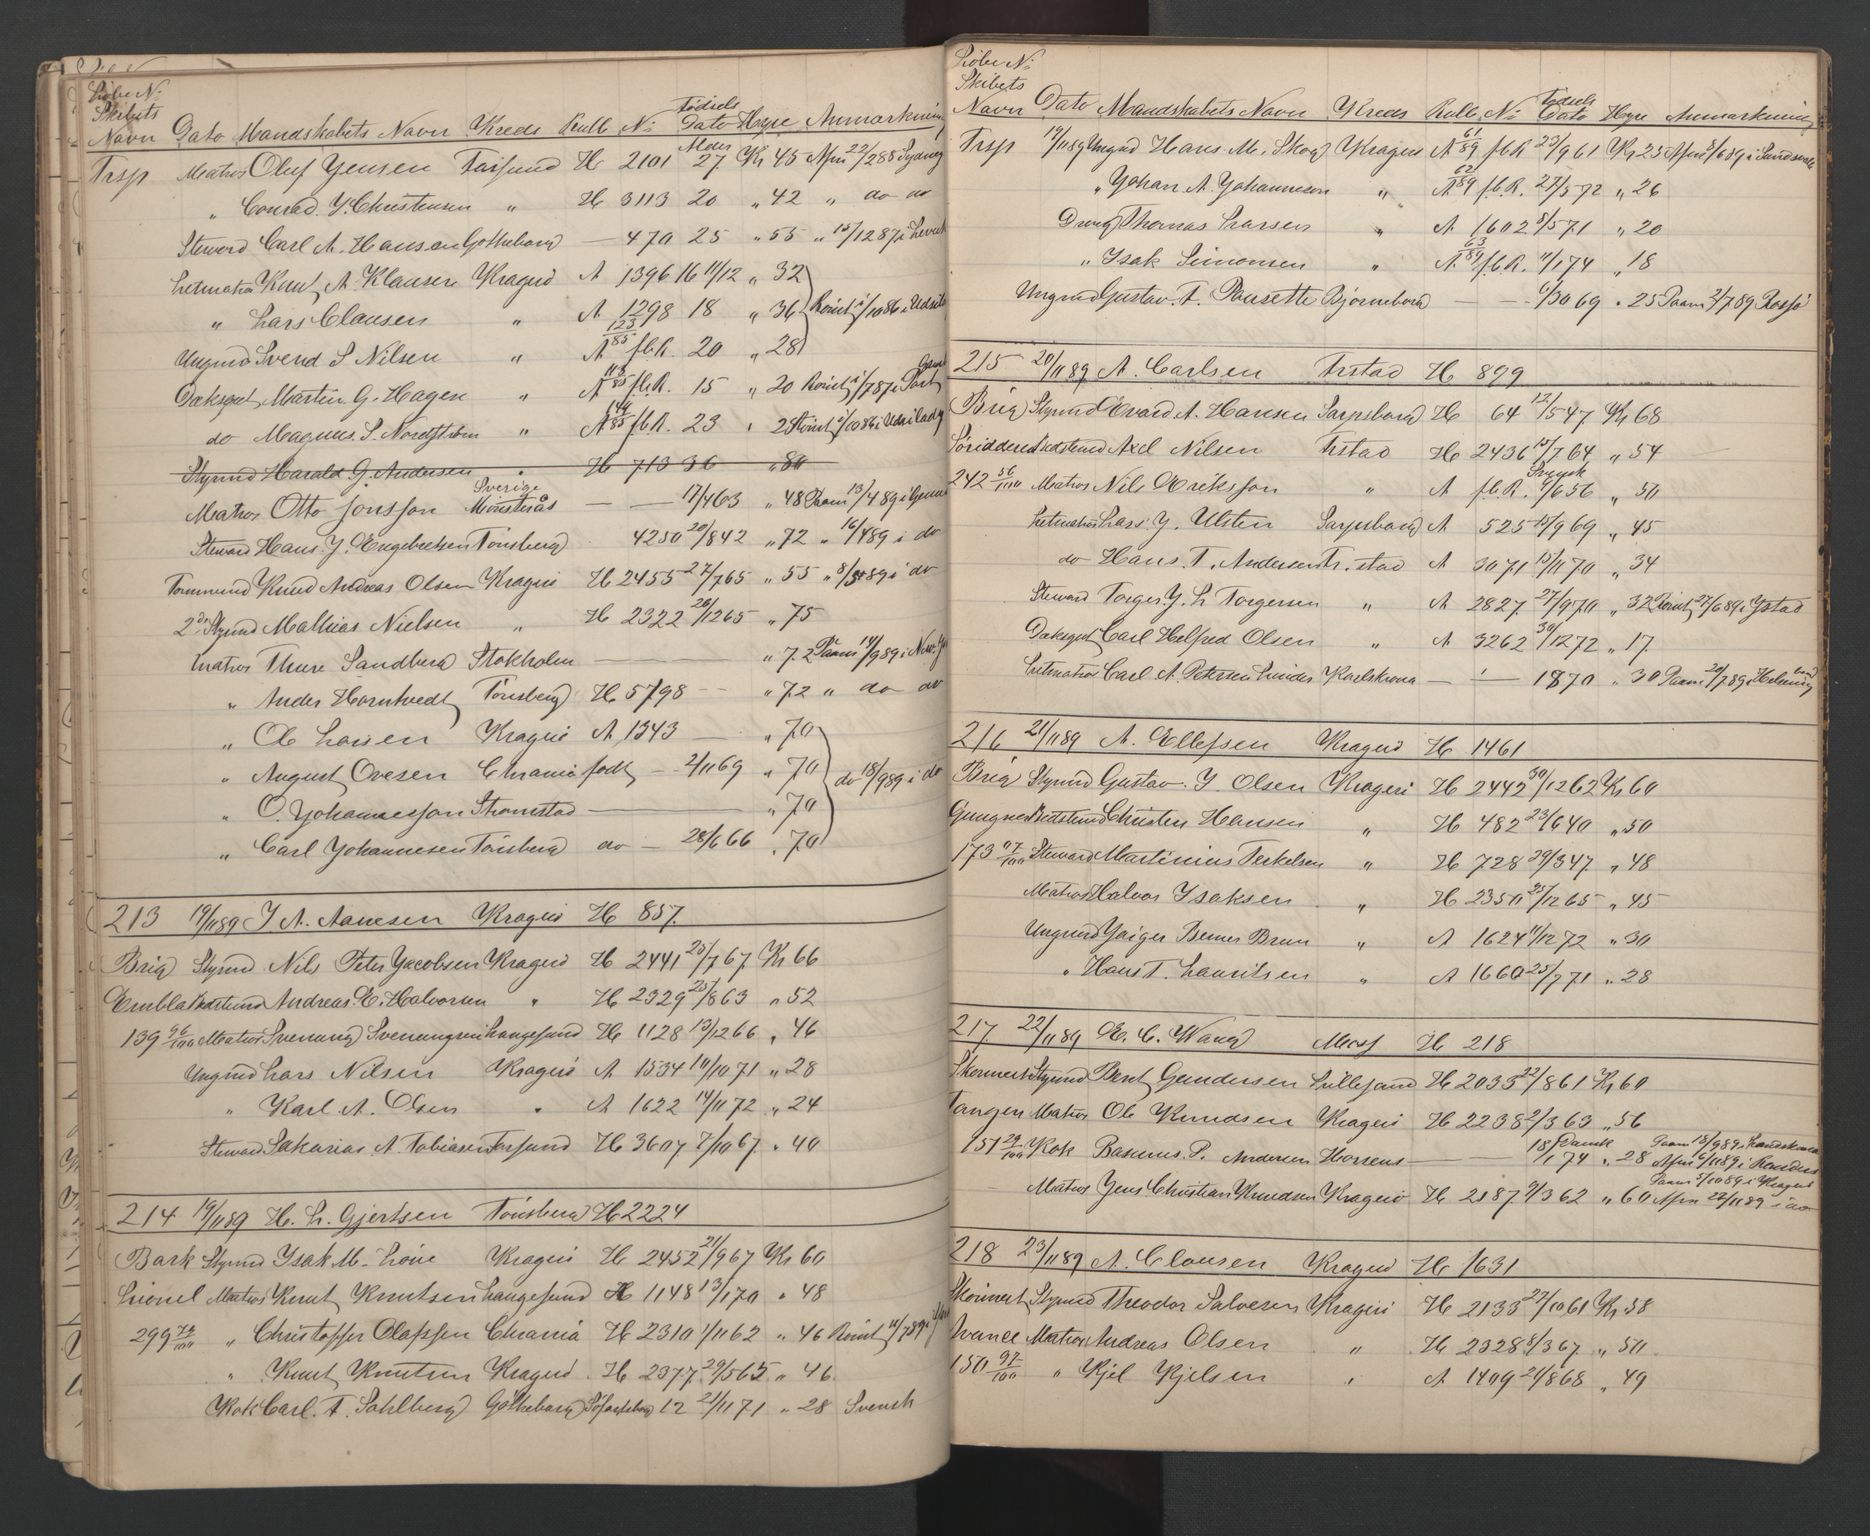 Løbe No
Skibets
Navn Dato Mandskabets Navn Kreds Rull No Fødsels Dato Hyre Anmærkning
Trsp Matros Oluf Jensen Farsund H 2101 Alder 27 Kr 45 Afm 22/2 88 Sydney
" Conrad J. Christensen " H 3113 20 " 42 " do do
Steward Carl A. Hansen Gotheborg — 470 25 " 55 " 15/12 87 i
Letmatros Knut A. Klausen Kragerø A 1396 16 11/12 " 32
" Lars Clausen " A 1298 18 " 36 Rømt 1/10 86 i
Ungmd Svend S. Nilsen " A 123/85 f.b.R. 20 " 28
Dæksgut Martin G. Hagen " A /85 f.b.R. 15 " 20 Rømt /7 87 i Port
do Magnus S. Nordstrøm " A /85 f.b.R. 23 " 2 Rømt 1/10 86 i
Styrmd Harald G. Andersen " H 713 36 " 80
Matros Otto Jonsson Sverige Mönsterås — — 17/4 63 " 48 Paam 13/4 89 i
Steward Hans J. Engebretsen Tønsberg 4250 20/8 42 " 72 " 16/4 89 i do
Tømmermd Knud Andreas Olsen Kragerø H 2455 27/7 65 " 55 " 8/5 89 i do
2d Styrmd Mathias Nielsen " H 2322 26/12 65 " 75
Matros Thure Sandberg Stokholm — " 72 Paam 14/9 89 i New-Y
" Anders Horntvedt Tønsberg H 5798 — " 72 " do do
" Ole Larsen Kragerø A 1343 — " 70
" August Ovesen Chrania født — 2/11 69 " 70 do 18/9 89 i do
" O. Johannesson Strømstad — " 70
" Carl Johannesen Tønsberg do — 28/6 66 " 70
213 19/11 89 J. A. Aanesen Kragerø H 857.
Brig Styrmd Nils Peter Jacobsen Kragerø H 2441 23/7 67 Kr 66
Embla Bestmd Andreas E. Halvorsen " H 2329 25/8 63 " 52
139 96/100 Matros Svenung Svenungsen Langesund H 1128 13/12 66 " 46
Ungmd Lars Nilsen Kragerø A 1534 10/10 71 " 28
" Karl A. Olsen " A 1622 14/11 72 " 24
Steward Sakarias A. Tobiasen Farsund H 3607 7/10 67 " 40
214 19/11 89 H. L. Gjertsen Tønsberg H 2224
Bark Styrmd Isak M. Love Kragerø H 2452 21/9 67 Kr 60
Lionel Matros Knut Knutsen Langesund H 1148 13/1 70 " 48
299 74/100 " Christoffer Olafsen Chrania H 2310 1/11 62 " 46 Rømt 11/7 89 i
" Knut Knutsen Kragerø H 2377 29/5 65 " 46
Kok Carl F. Sahlberg Götheborg 12 21/11 71 " 28 Svensk
Løbe No
Skibets
Navn Dato Mandskabets Navn Kreds Rull No Fødsels Dato Hyre Anmærkning
Trsp 19/11 89 Ungmd Hans M. Skog Kragerø A 61/89 f.b.R 23/9 61 Kr 25 Afm /6 89 i Sundsvall
" Johan A. Johannesen " A 62/89 f.b.R. 27/5 72 " 26
Dreng Thomas Larsen " A 1602 8/5 71 " 20
" Isak Simonsen " A 63/89 f.b.R. 11/1 74 " 18
Ungmd Gustav F. Pousette Bjørneborg — — 6/10 69 " 25 Paam 2/7 89
215 20/11 89 A. Carlsen Frstad H 899
Brig Styrmd Evard A. Hansen Sarpsborg H 64 12/5 47 Kr 68
Søridderen Bestmd Axel Nilsen Frstad H 2436 15/7 64 " 54
242 56/100 Matros Nils Eriksson " A f.b.R. Svensk /6 56 " 50
Letmatros Lars J. Ulsten Sarpsborg A 525 15/9 69 " 45
do Hans T. Andersen Fr.stad A 3071 13/11 70 " 34
Steward Torger J. L. Torgersen " A 2827 27/9 70 " 32 Rømt 27/6 89 i Ystad
Dæksgut Carl Helfred Olsen " A 3262 30/12 72 " 17
Letmatros Carl A. Petersen Karlskrona — — 1870 " 30 Paam 20/7 89 i
216 21/11 89 A. Ellefsen Kragerø H 1461
Brig Styrmd Gustav J. Olsen Kragerø H 2442 30/12 62 Kr 60
Gungner Bestmd Christen Hansen " H 482 23/6 40 " 50
173 07/100 Steward Martinius Terkelsen " H 728 29/3 47 " 48
Matros Halvor Isaksen " H 2350 25/12 65 " 45
Ungmd Jaiger Berner Bruun " A 1624 11/12 72 " 30
" Hans T. Lauritsen " A 1660 25/7 71 " 28
217 22/11 89 E. C. Wang Moss H 218
Skonnert Styrmd Bent Gundersen Lillesand H 2033 22/8 61 Kr 60
Tangen Matros Ole Knudsen Kragerø H 2238 2/3 63 " 56
151 29/100 Kok Rasmus P. Andersen Horsens — — 18/1 74 Dansk " 28 Paam 18/9 89 i Landskrona Afm 6/11 89 i Randers
Matros Jens Christian Knudsen Kragerø H 2187 9/3 62 " 60 Paam 5/10 89 i Kragerø Afm 22/11 89 i do
218 23/11 89 A. Clausen Kragerø H 1631
Skonnert Styrmd Theodor Salvesen Kragerø H 2133 22/10 61 Kr 58
Avance Matros Andreas Olsen " H 2328 8/3 67 " 50
150 97/100 " Kjel Kjelsen " A 1409 21/8 68 " 49